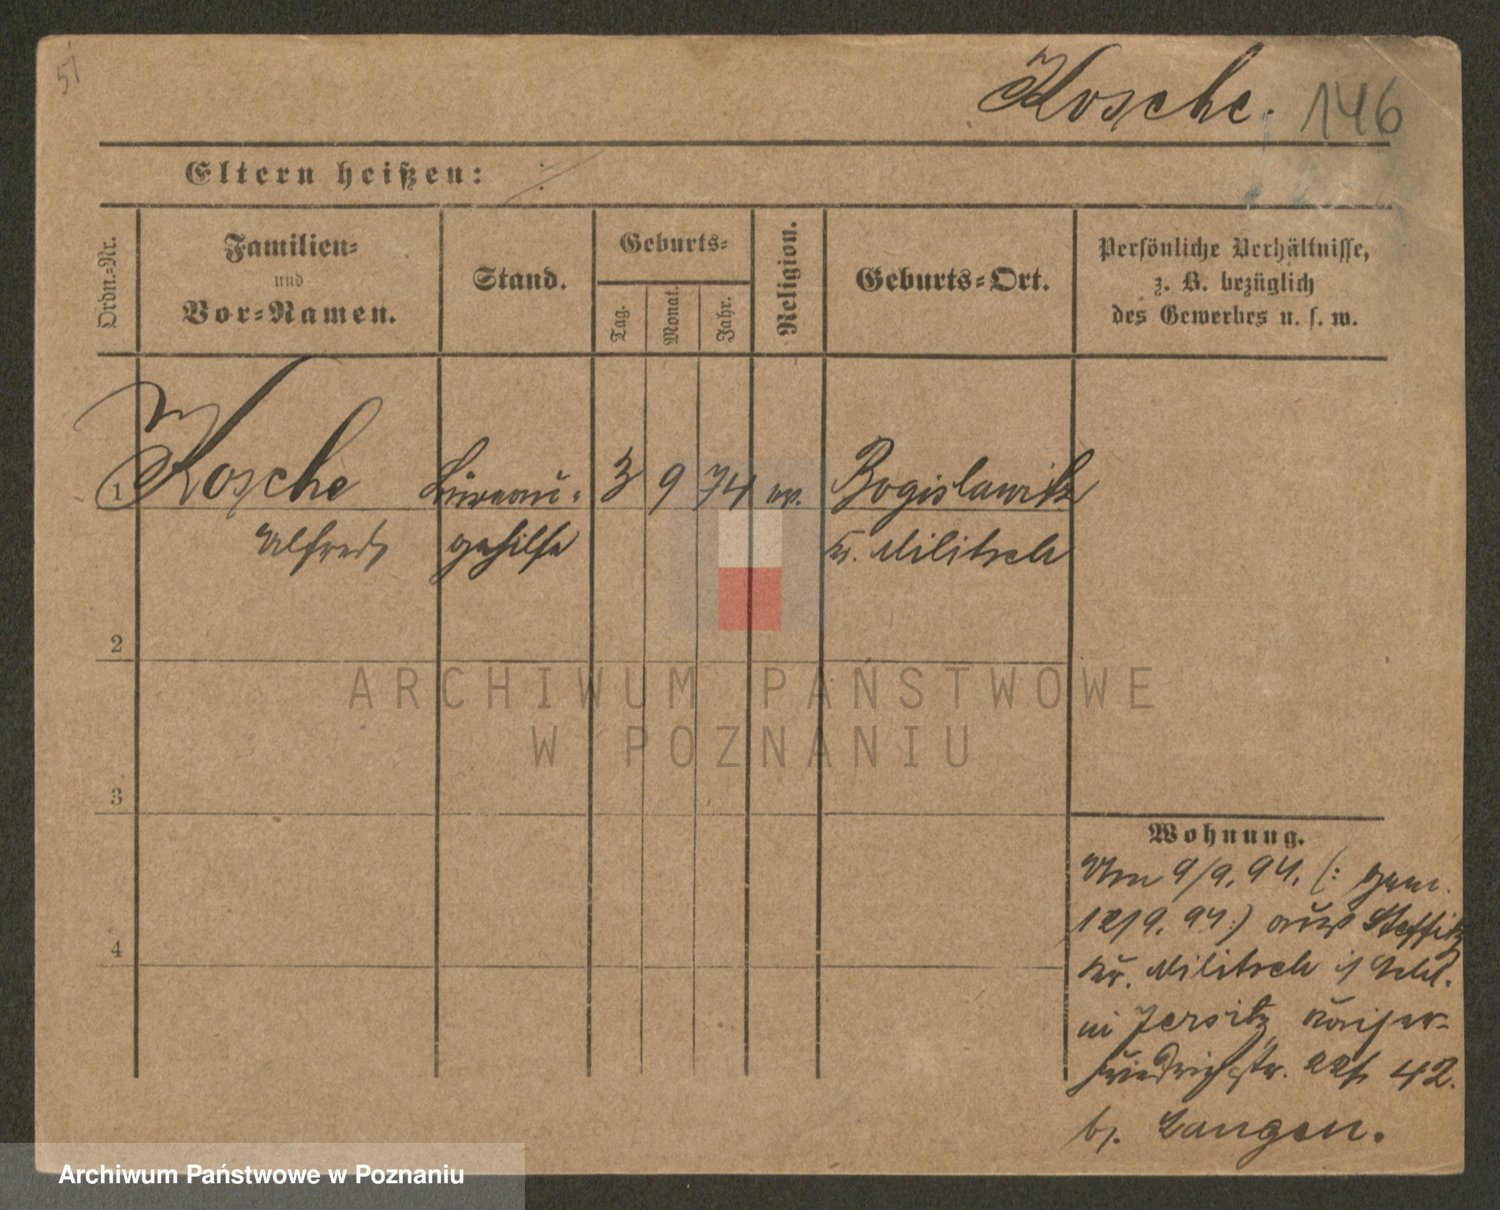 51
Kosche. 146
Eltern heißen: ∕.
Ordn.=Nr.
Familien=
und
Vor=Namen.
Stand.
Geburts=
Tag.
Monat.
Jahr.
Religion.
Geburts=Ort.
Persönliche Verhältnisse,
z. B. bezüglich
des Gewerbes u. s. w.
1 Kosche Büreau- 3 9 74 ev. Bogislawitz
Alfred gehilfe Kr. Militsch
2
3
4
ARCHIWUM PAŃSTWOWE
W POZNANIU
Wohnung.
Am 9/9. 94. (: gem.
12/9. 94:) aus
Kr. Militsch i/ Schl.
in Jersitz Kaiser-
friedrichstr. 42.
b/. Langen.
Archiwum Państwowe w Poznaniu